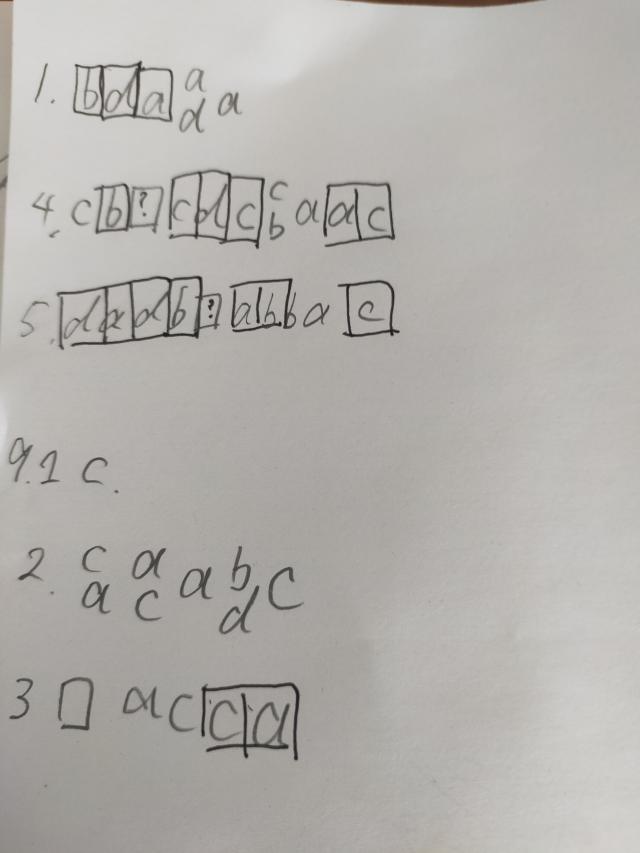 1. b d a a d a
4. c b ? c d c c b a a c
5. d a d b ? a b b b a c
9.1 c.
2. c a a c a b d c
3 □ a c c a